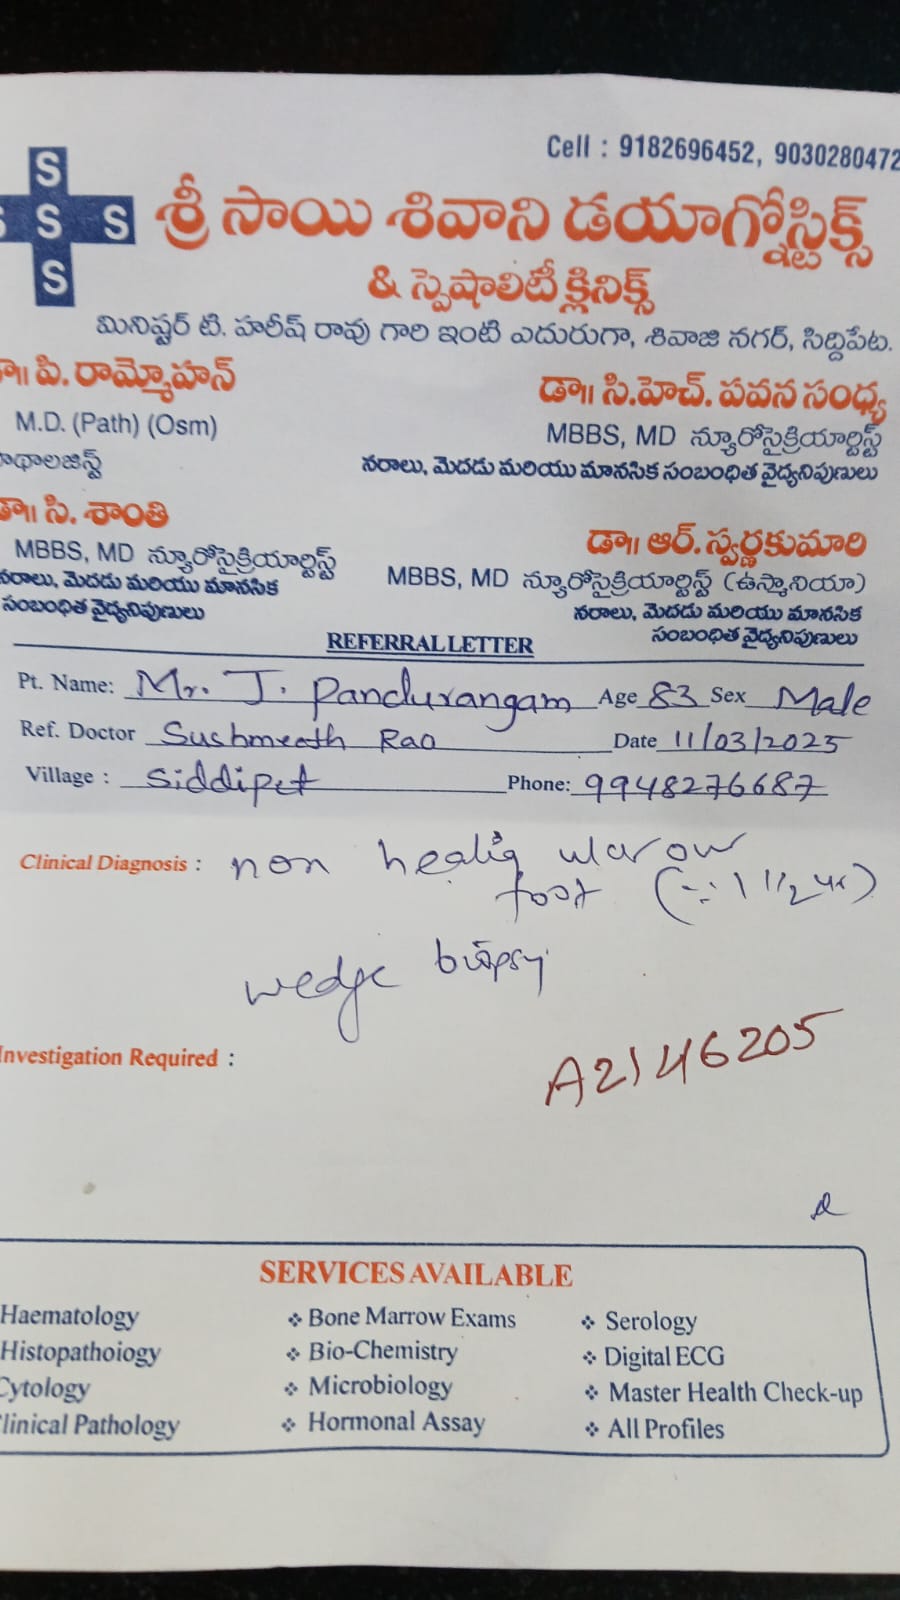 Cell : 9182696452, 9030280472
S
S S S
S
శ్రీ సాయి శివాని డయాగ్నోస్టిక్స్
& స్పెషాలిటీ క్లినిక్స్
మినిష్టర్ టి. హరీష్ రావు గారి ఇంటి ఎదురుగా, శివాజి నగర్, సిద్దిపేట.
డా॥ పి. రామ్మోహన్
M.D. (Path) (Osm)
పాథాలజిస్ట్
డా॥ సి.హెచ్. పవన సంధ్య
MBBS, MD న్యూరోసైక్రియార్టిస్ట్
నరాలు, మెదడు మరియు మానసిక సంబంధిత వైద్యనిపుణులు
డా॥ సి. శాంతి
MBBS, MD న్యూరోసైక్రియార్టిస్ట్
నరాలు, మెదడు మరియు మానసిక
సంబంధిత వైద్యనిపుణులు
డా॥ ఆర్. స్వర్ణకుమారి
MBBS, MD న్యూరోసైక్రియార్టిస్ట్ (ఉస్మానియా)
నరాలు, మెదడు మరియు మానసిక
సంబంధిత వైద్యనిపుణులు
REFERRAL LETTER
Pt. Name: Mr. J. Pandurangam Age 83 Sex Male
Ref. Doctor Sushmeath Rao Date 11/03/2025
Village : Siddipet Phone: 9948276687
Clinical Diagnosis : non healig ulcer over
foot (1 1/2 yr)
wedge biopsy
Investigation Required :
A2146205
SERVICES AVAILABLE
Haematology
Histopathoiogy
Cytology
Clinical Pathology
❖ Bone Marrow Exams
❖ Bio-Chemistry
❖ Microbiology
❖ Hormonal Assay
❖ Serology
❖ Digital ECG
❖ Master Health Check-up
❖ All Profiles